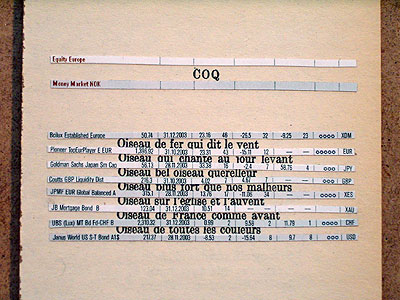 Equity Europe
COQ
Money Market NOK
Bcilux Established Europe 56.74 31.12.2003 23.16 46 -26.5 32 -9.25 23 oooo XDM
Oiseau de fer qui dit le vent
Pioneer TopEurPlayer E EUR 31.10.2003 23.31 43 -15.11 12 — — EUR
Oiseau qui chante au jour levant
Goldman Sachs Japan Sm Cap 56.13 28.11.2003 33.38 16 -2.4 56.75 4 JPY
Oiseau bel oiseau querelleur
Coutts GBP Liquidity Dist 31.10.2003 4.02 7 4.67 7 — — GBP
Oiseau plus fort que nos malheurs
JPMF EUR Global Balanced A 28.11.2003 13.76 17 -11.06 34 — — oooo XES
Oiseau sur l'église et l'auvent
JB Mortgage Bond B 123.04 31.12.2003 10.51 14 — — — — XAU
Oiseau de France comme avant
UBS (Lux) MT Bd Fd-CHF B 31.12.2003 0.99 2 9.58 2 11.78 1 oooo CHF
Oiseau de toutes les couleurs
Janus World US S-T Bond A1$ 28.11.2003 -8.53 2 -15.64 9 9.7 8 ooo USD